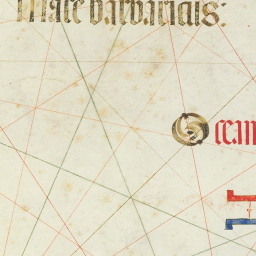 Mare barbaricus:
Ocean